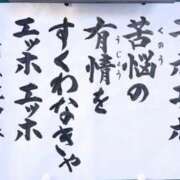 苦悩の
くのう
有情を
うじょう
すくわなきゃ
エッホエッホ